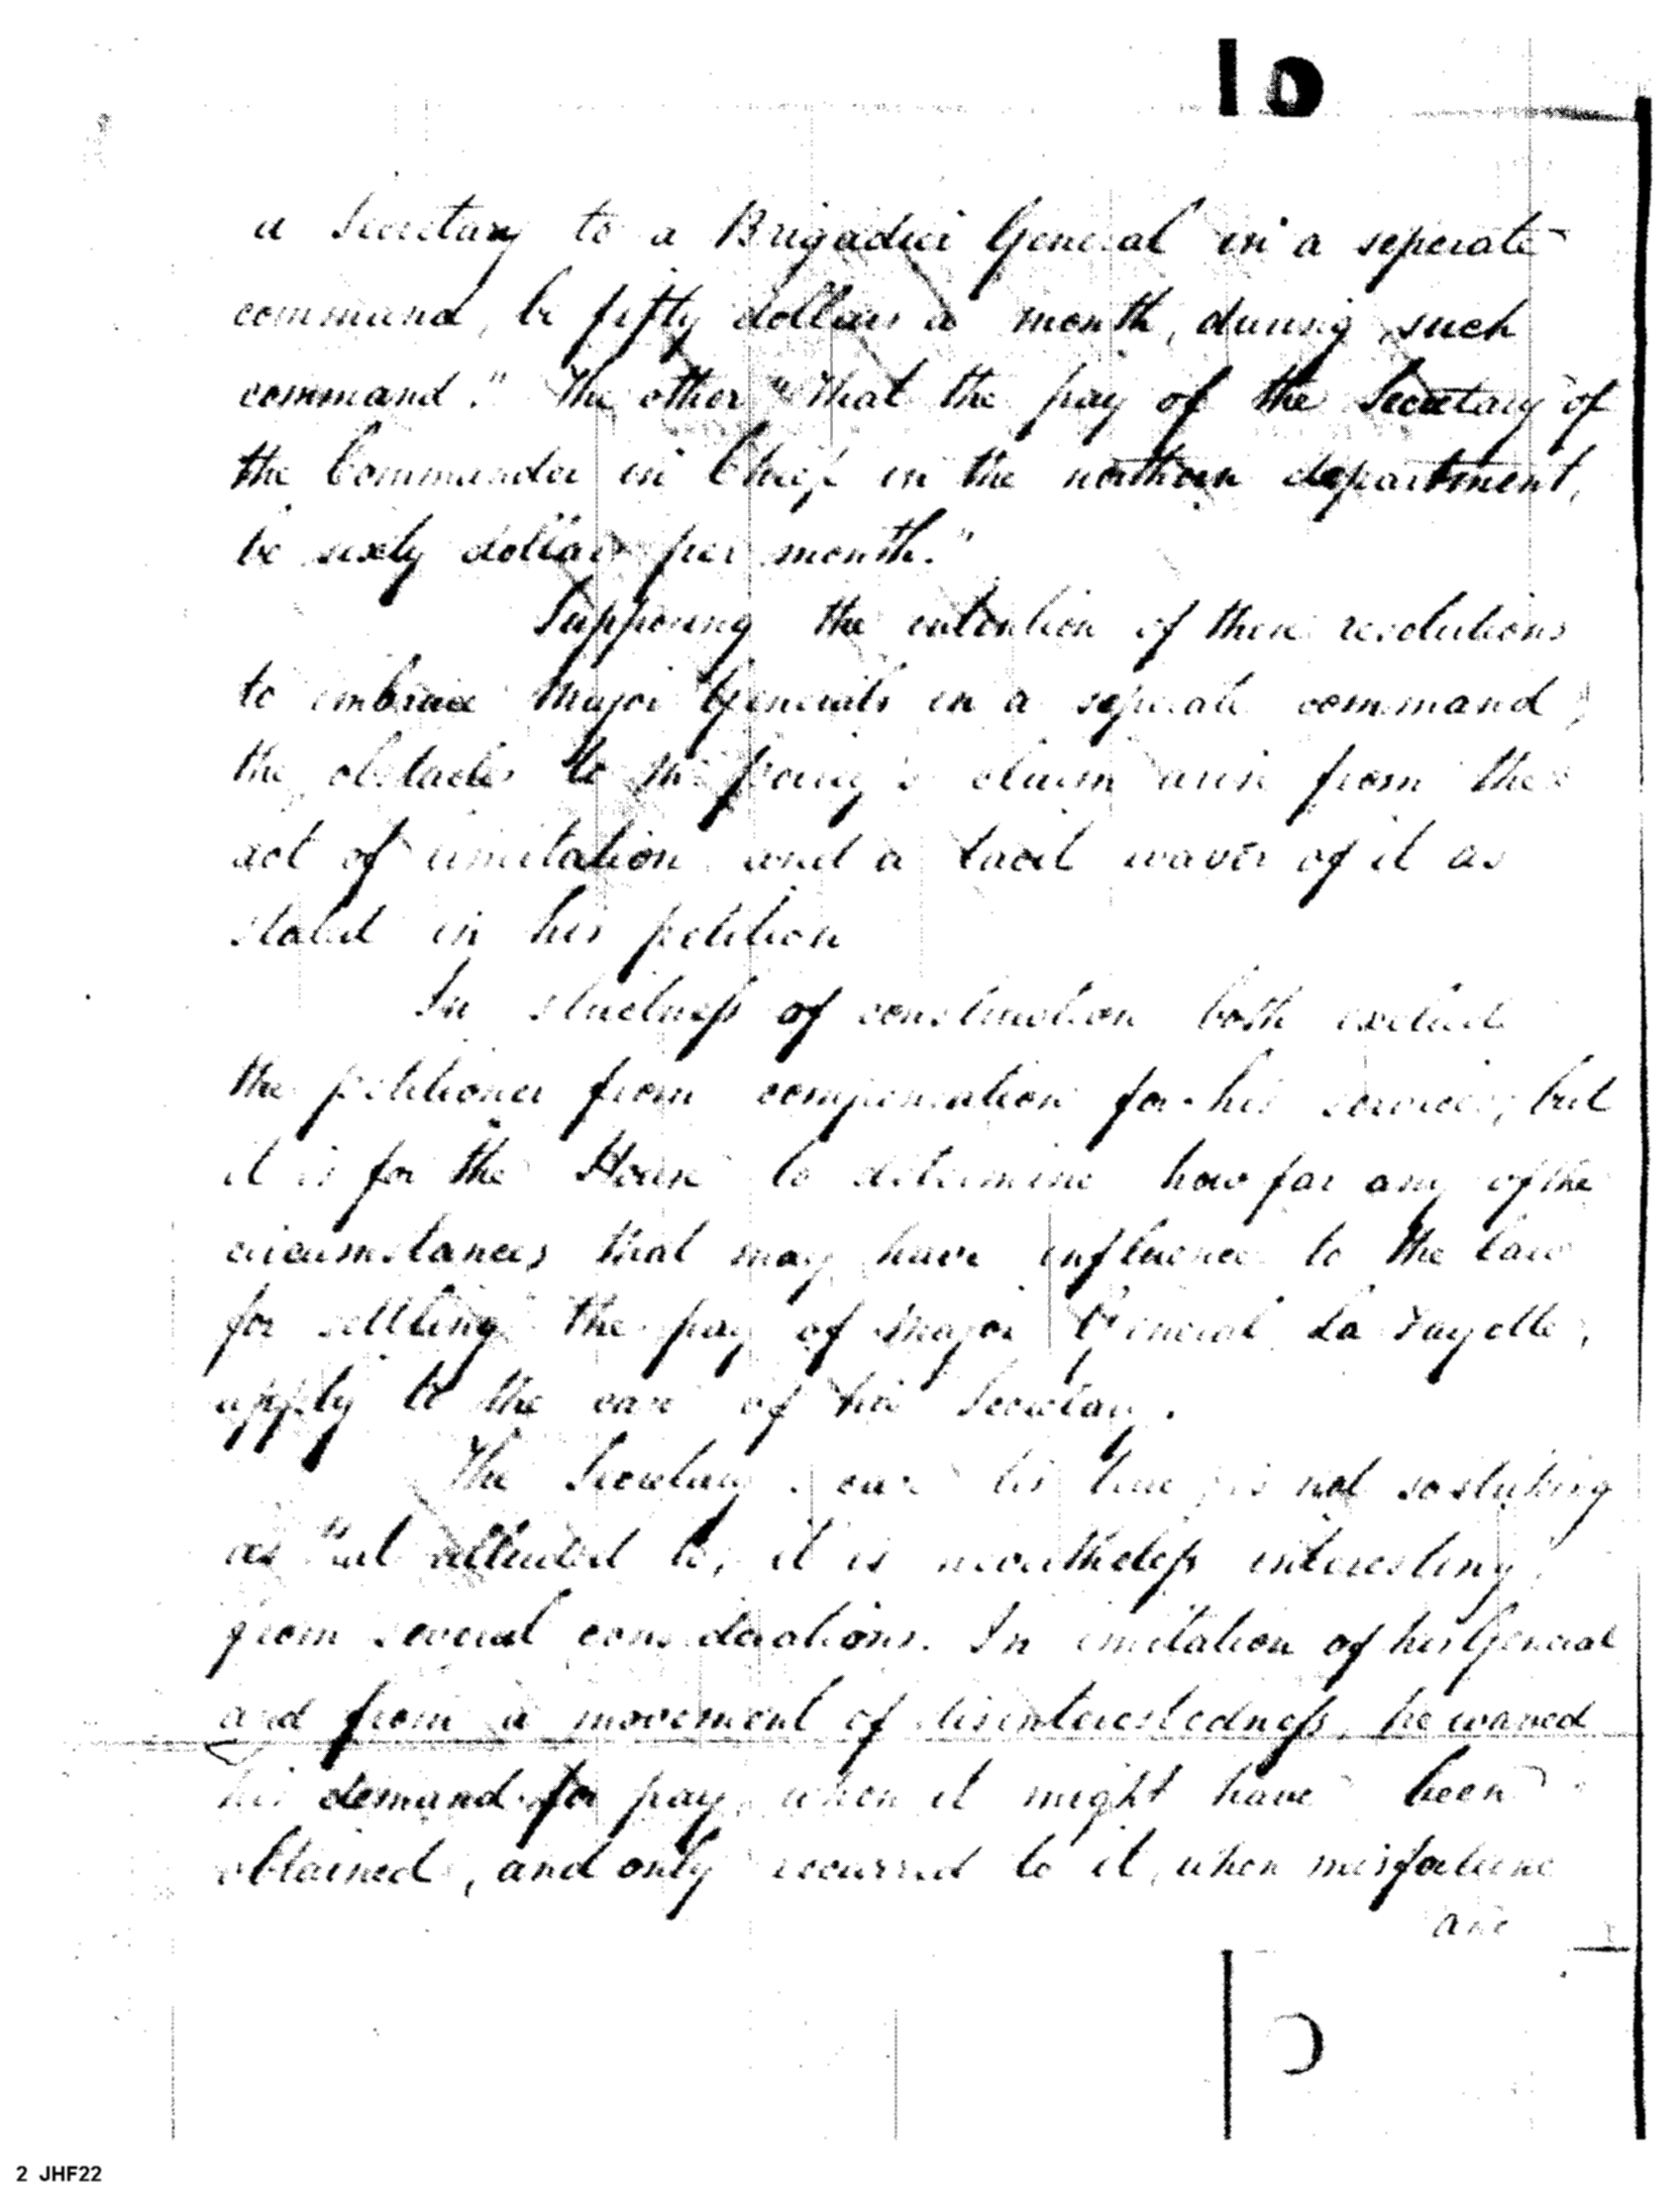 10
a Secretary to a Brigadier General in a seperate
command, be fifty dollars a month, during such
command." The other "that the pay of the Secretary of
the Commander in Chief in the northern department,
be sixty dollars per month."
Supposing the intention of these resolutions
to embrace Major Generals in a seperate command;
the obstacles to claim arise from the
act of limitation, and a tacit waver of it as
stated in his petition
In strictness of construction both exclude
the petitioner from compensation for his services; but
it is for the House to determine how far any of the
circumstances that may have influence to the law
for settling the pay of Major General La Fayette,
apply to the case of his Secretary.
The Secretary's case is not so striking
as that alluded to, it is nevertheless interesting
from several considerations. In imitation of his General
and from a movement of disinterestedness, he waved
his demand for pay, when it might have been
obtained, and only recurred to it, when misfortune
and
2 JHF22